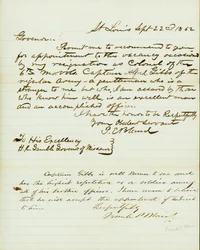 St. Louis Sept 22nd 1862
Governor:
Permit me to recommend to you
for appointment to the vacancy occasioned
by my resignation as Colonel of the
6th Mo Vols Captain Alfd Gibbs of the
regular Army, a gentleman who is a
stranger to me but I am assured by those
who know him well is an excellent man
and an accomplished officer.
I have the honor to be Respectfully
Your Obedient Servant
To His Excellency
H.R. Gamble Governor of Missouri
Captain Gibbs is well known to me and
has the highest reputation as a soldier among
all his brother officers. I have
to him
Frank P. Blair